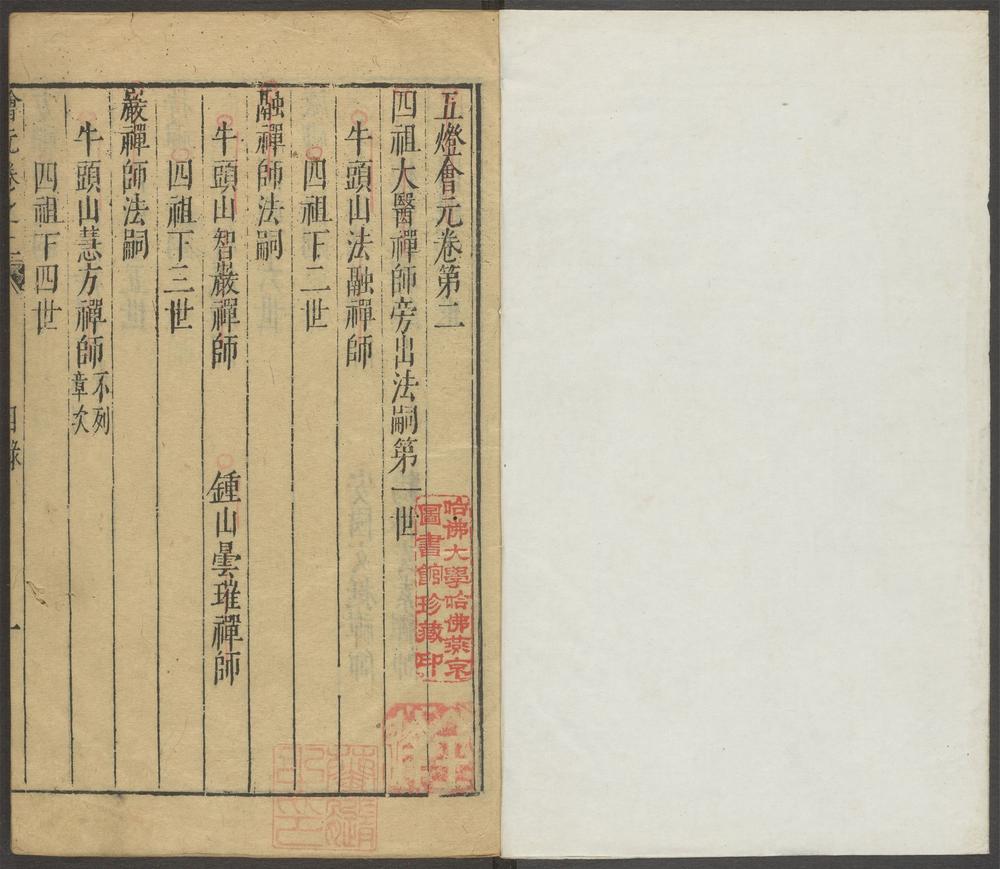 五燈會元卷第二
四祖大醫禪師旁出法嗣第一世
牛頭山法融禪師
四祖下二世
融禪師法嗣
牛頭山智巖禪師
鍾山曇璀禪師
四祖下三世
巖禪師法嗣
牛頭山慧方禪師 不列章次
四祖下四世
會元卷之二
目錄
一
哈佛大學哈佛燕京
圖書館珍藏印